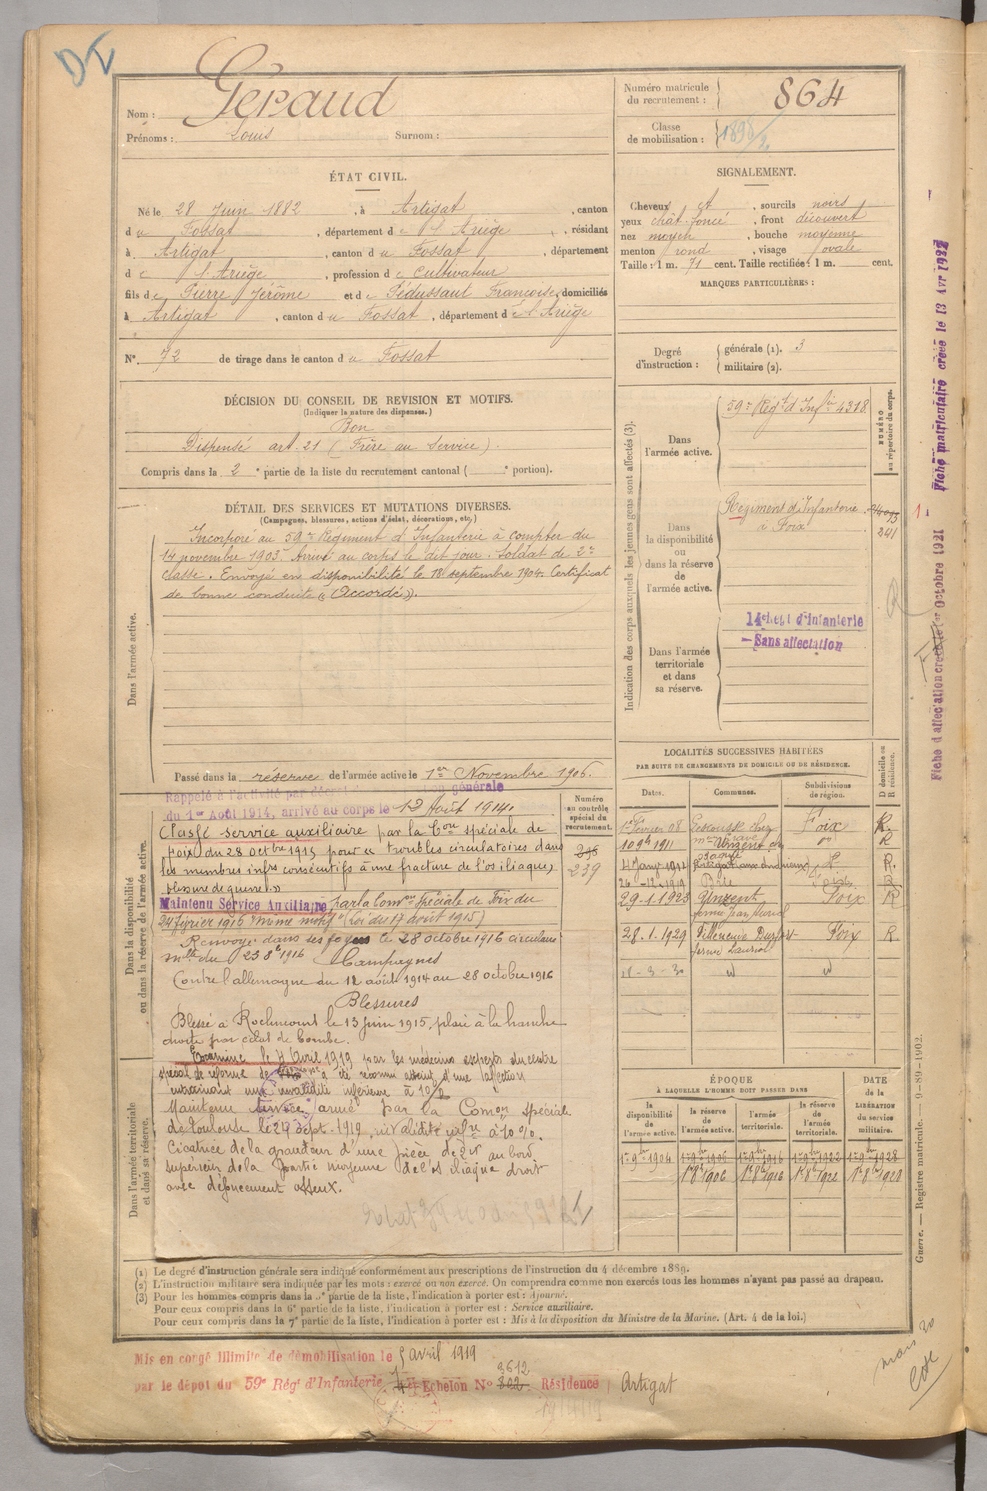 Nom : Geraud
Prénoms : Louis Surnom :
Numéro matricule du recrutement : 864
Classe de mobilisation : 1898/2
ÉTAT CIVIL.
Né le 28 Juin 1882, à Artigat, canton
du Fossat, département de l'Ariège, résidant
à Artigat, canton du Fossat, département
de l'Ariège, profession de Cultivateur
fils de Pierre Jérôme et de Pédussaut Françoise, domiciliés
à Artigat, canton du Fossat, département de l'Ariège
N° 72 de tirage dans le canton du Fossat
SIGNALEMENT.
Cheveux et, sourcils noirs
yeux chât. foncé, front découvert
nez moyen, bouche moyenne
menton rond, visage ovale
Taille : 1 m. 71 cent. Taille rectifiée : 1 m. cent.
MARQUES PARTICULIÈRES :
Degré d'instruction : générale (1). 3
militaire (2).
DÉCISION DU CONSEIL DE REVISION ET MOTIFS.
(Indiquer la nature des dispenses.)
Bon
Dispensé art. 21 (Frère au Service)
Compris dans la 2e partie de la liste du recrutement cantonal ( e portion).
DÉTAIL DES SERVICES ET MUTATIONS DIVERSES.
(Campagnes, blessures, actions d'éclat, décorations, etc.)
Dans l'armée active.
Incorporé au 59e Régiment d'Infanterie à compter du
14 novembre 1903 Arrivé au corps le dit jour. Soldat de 2e
classe. Envoyé en disponibilité le 18 septembre 1904. Certificat
de bonne conduite « Accordé ».
Passé dans la réserve de l'armée active le 1er Novembre 1906.
Dans la disponibilité ou dans la réserve de l'armée active.
Rappelé à l'activité par décret générale
du 1er Août 1914, arrivé au corps le 12 Août 1914.
Classé service auxiliaire par la Con spéciale de
Foix du 28 octbre 1915 pour « troubles circulatoires dans
les membres infrs consécutifs à une fracture de l'os iliaque,
blessure de guerre. »
Maintenu Service Auxiliaire par la Comon Spéciale de Foix du
24 février 1916 "même motif" (loi du 17 août 1915)
Renvoyé dans ses foyers le 28 octobre 1916 circulaire
mlle du 23 8e 1916
Campagnes
Contre l'allemagne du 12 août 1914 au 28 octobre 1916
Blessures
Blessé à Roclincourt le 13 Juin 1915, plaie à la hanche
droite par éclat de bombe.
Dans l'armée territoriale et dans sa réserve.
Examiné le 4 Avril 1919 par les médecins experts du centre
spécial de réforme de a été reconnu atteint d'une affection
entrainant une invalidité inférieure à 10%
Maintenu service armé par la Comon spéciale
de Toulouse le 29 Sept. 1919, invalidité infre à 10 %.
Cicatrice de la grandeur d'une pièce de 2fr au bord
supérieur de la partie moyenne de l'os iliaque droit
avec défoncement osseux.
Numéro au contrôle spécial du recrutement.
246
239
Indication des corps auxquels les jeunes gens sont affectés (3).
Dans l'armée active.
59e Régt d'Infie 4318
NUMÉRO au répertoire du corps.
Dans la disponibilité ou dans la réserve de l'armée active.
Régiment d'Infanterie
à Foix
241
Dans l'armée territoriale et dans sa réserve.
14e Regt d'Infanterie
— Sans affectation
LOCALITÉS SUCCESSIVES HABITÉES
PAR SUITE DE CHANGEMENTS DE DOMICILE OU DE RÉSIDENCE.
Dates. Communes. Subdivisions de région. D domicile ou R résidence.
1er Février 08 Lescousse chez Foix R.
10 9bre 1911 R
R.
26-12-1919 R
29.1.1923 Unzent Foix R
28.1.1929 Villeneuve Durfort Foix R
id id
ÉPOQUE
À LAQUELLE L'HOMME DOIT PASSER DANS
la disponibilité de l'armée active. la réserve de l'armée active. l'armée territoriale. la réserve de l'armée territoriale. DATE de la LIBÉRATION du service militaire.
1er 9bre 1904 1er 9bre 1906 1er 9bre 1916 1er 9bre 1922 1er 9bre 1928
1er 8bre 1906 1er 8bre 1916 1er 8bre 1922 1er 8bre 1928
(1) Le degré d'instruction générale sera indiqué conformément aux prescriptions de l'instruction du 4 décembre 1889.
(2) L'instruction militaire sera indiquée par les mots : exercé ou non exercé. On comprendra comme non exercés tous les hommes n'ayant pas passé au drapeau.
(3) Pour les hommes compris dans la 5e partie de la liste, l'indication à porter est : Ajourné.
Pour ceux compris dans la 6e partie de la liste, l'indication à porter est : Service auxiliaire.
Pour ceux compris dans la 7e partie de la liste, l'indication à porter est : Mis à la disposition du Ministre de la Marine. (Art. 4 de la loi.)
Mis en congé illimité de démobilisation le 5 avril 1919
par le dépôt du 59e Régt d'Infanterie Echelon N° 302 3612 Résidence Artigat
Guerre. — Registre matricule. — 9-89-1902.
Fiche d'affectation créée le 1er Octobre 1921
Fiche matriculaire créée le 13 Avr 1932